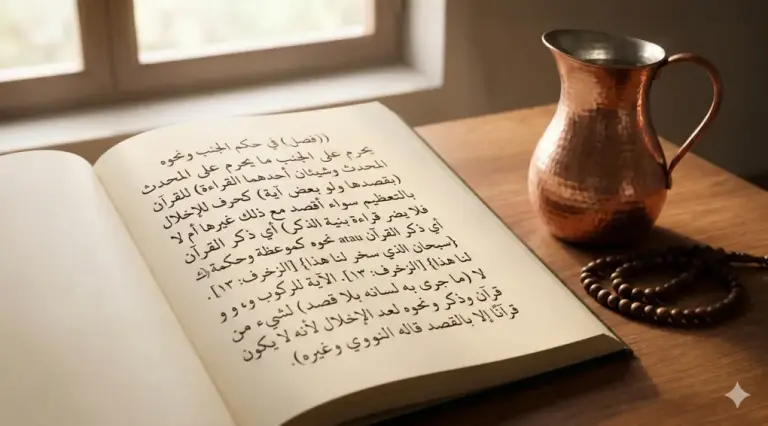 ((فصل) في حكم الجنب ونحوه
يحرم على الجنب ما يحرم على المحدث
المحدث وشيئان أحدهما القراءة) للقرآن
(بقصدها ولو بعض آية) كحرف للإخلال
بالتعظيم سواء أقصد مع ذلك غيرها أم لا
فلا يضر قراءة بنية الذكر) أي ذكر القرآن
أي ذكر القرآن atau نحوه كموعظة وحكمة (ك
{سبحان الذي سخر لنا هذا} [الزخرف: ١٣]
لنا هذا} [الزخرف: ١٣]. الآية للركوب و
لا (ما جرى به لسانه بلا قصد) لشيء من
قرآن وذكر ونحوه لعد الإخلال لأنه لا يكون
قرآنًا إلا بالقصد قاله النووي وغيره).